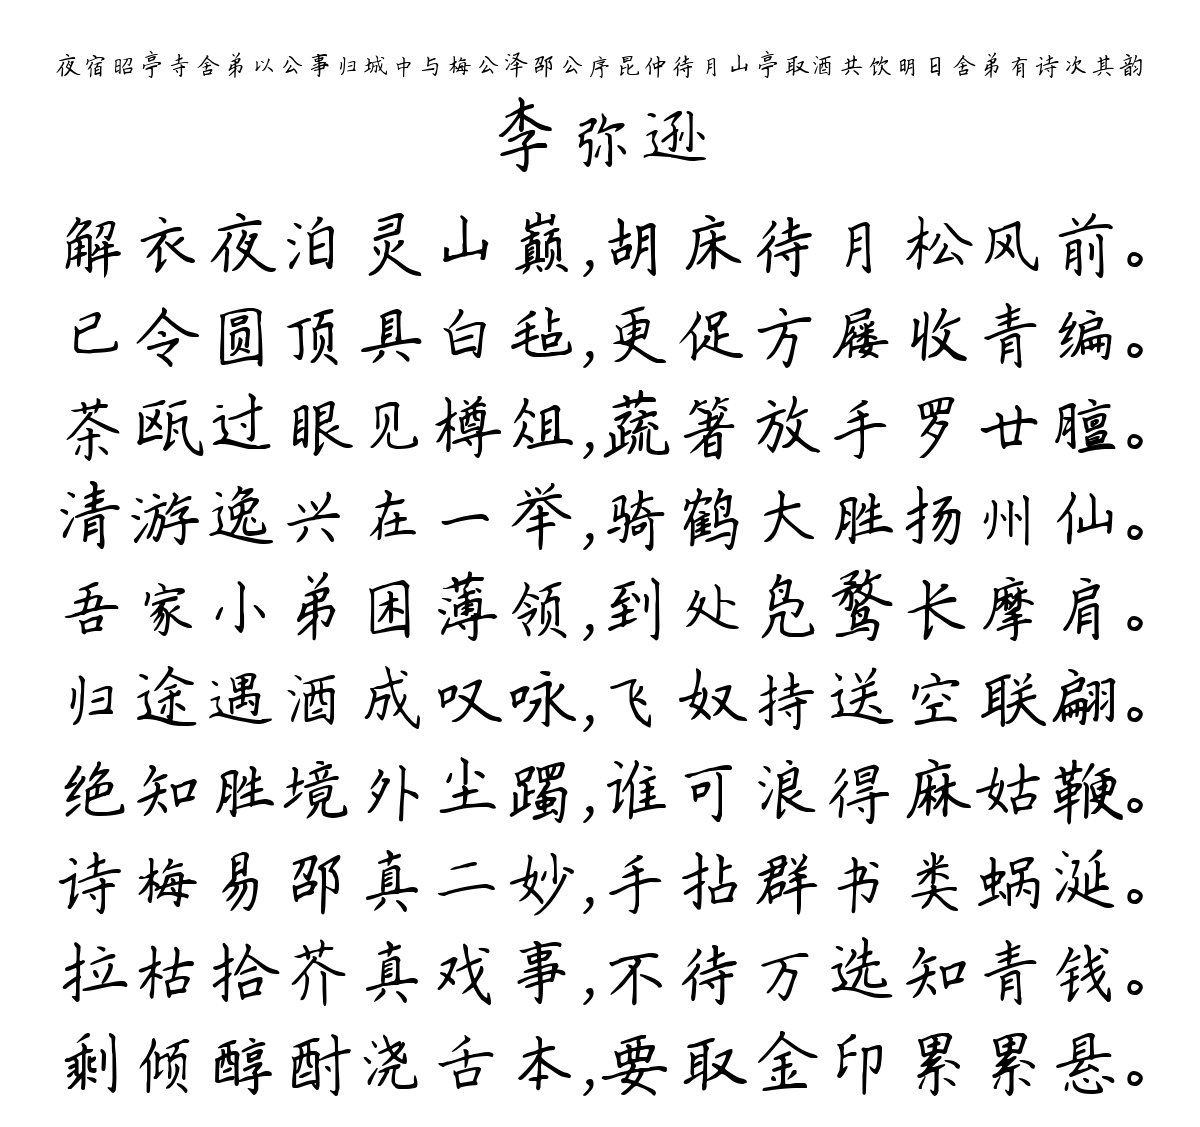 夜宿昭亭寺舍弟以公事归城中与梅公泽邵公序昆仲待月山亭取酒共饮明日舍弟有诗次其韵
李弥逊
解衣夜泊灵山巅,胡床待月松风前。
已令圆顶具白毡,更促方屦收青编。
茶瓯过眼见樽俎,蔬箸放手罗廿膻。
清游逸兴在一举,骑鹤大胜扬州仙。
吾家小弟困薄领,到处凫鹜长摩肩。
归途遇酒成叹咏,飞奴持送空联翩。
绝知胜境外尘躅,谁可浪得麻姑鞭。
诗梅易邵真二妙,手拈群书类蜗涎。
拉枯拾芥真戏事,不待万选知青钱。
剩倾醇酎浇舌本,要取金印累累悬。